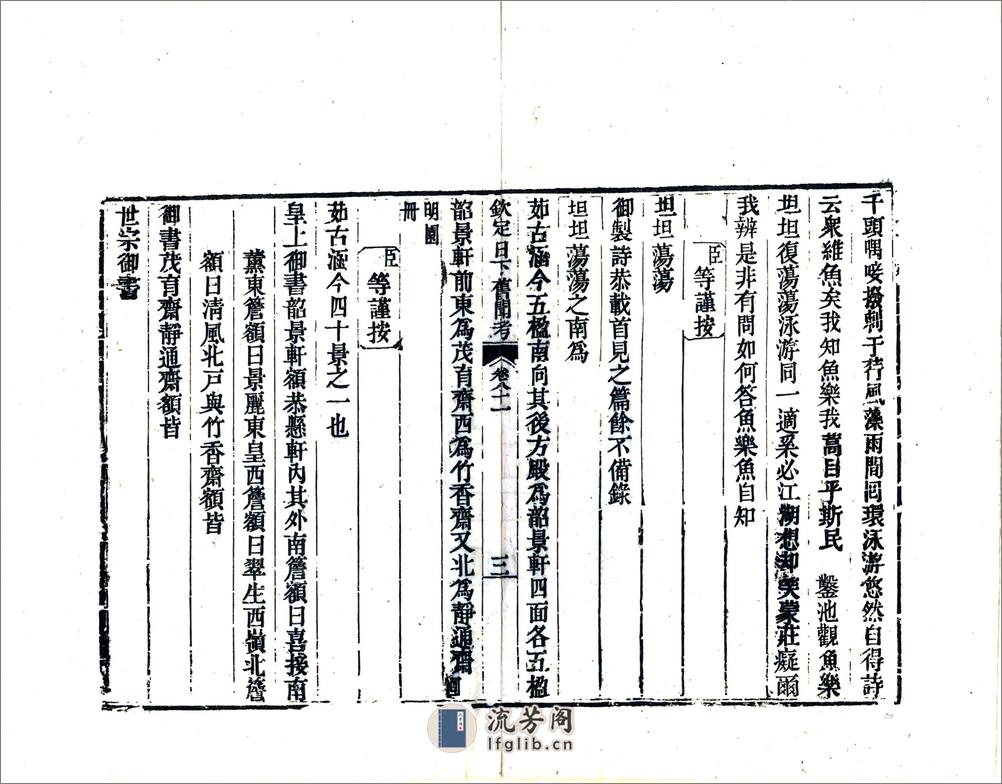 千頭喁唼撥剌于荇風藻雨間囘環泳游悠然自得詩
云衆維魚矣我知魚樂我蒿目乎斯民　鑿池觀魚樂
坦坦復蕩蕩泳游同一適奚必江湖想却笑蒙莊癡爾
我辨是非有問如何答魚樂魚自知
臣等謹按
坦坦蕩蕩
御製詩恭載首見之篇餘不備錄
坦坦蕩蕩之南爲
茹古涵今五楹南向其後方殿爲韶景軒四面各五楹
欽定日下舊聞考　卷八十一　三
韶景軒前東爲茂育齋西爲竹香齋又北爲靜通齋圓
明園
冊
臣等謹按
茹古涵今四十景之一也
皇上御書韶景軒額恭懸軒內其外南簷額曰喜接南
薰東簷額曰景麗東皇西簷額曰翠生西嶺北簷
額曰清風北戸與竹香齋額皆
御書茂育齋靜通齋額皆
世宗御書
流芳阁
lfglib.cn